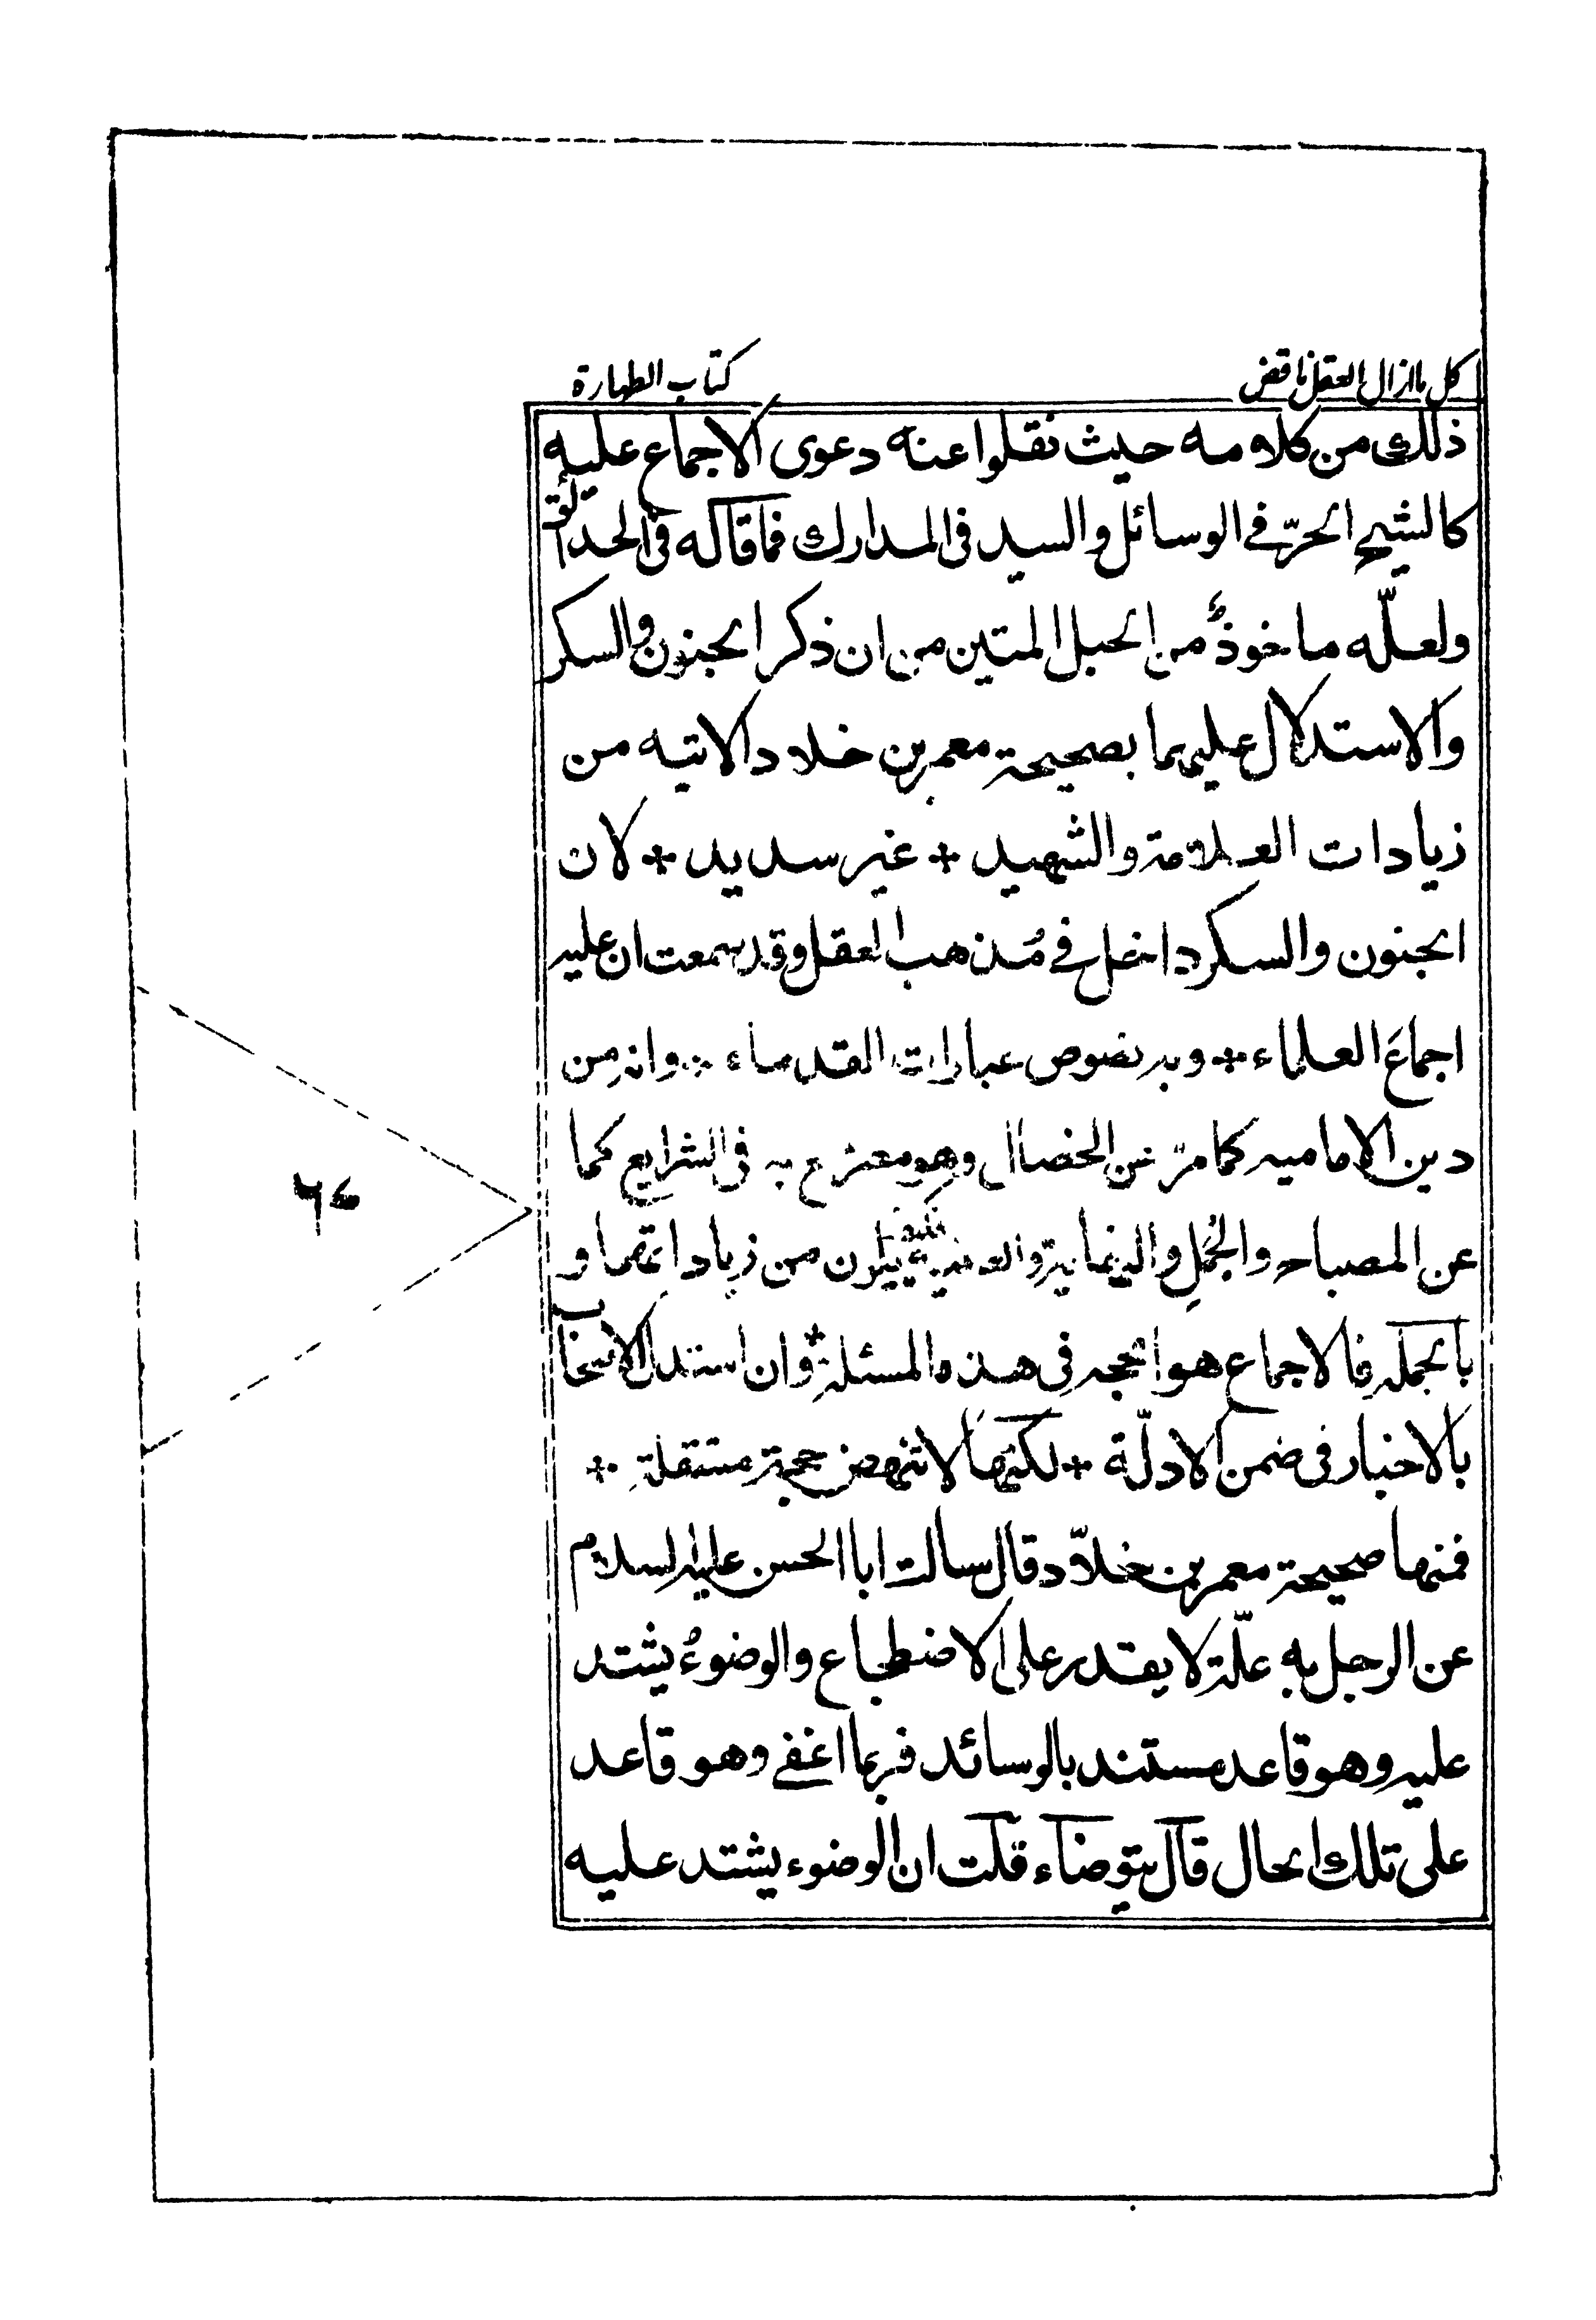 كل ما ازال العقل ناقض
كتاب الطهارة
ذلك من كلامه حيث نقلوا عنه دعوى الاجماع عليه
كالشيخ الحرّ في الوسائل والسيد فى المدارك فما قاله فى الحدائق
ولعلّه ماخوذٌ من الحبل المتين من ان ذكر الجنون والسكر
والاستدلال عليهما بصحيحة معمر بن خلاد الاتيه من
زيادات العلامة والشهيد * غير سديد * لان
الجنون والسكر داخل في مُذهب العقل وقد سمعت ان عليه
اجماعَ العلماء * وبه نصوص عبارات القدماء * وانه من
دين الاماميه كما مرّ عن الخصال وهو مصرّح به فى الشرايع كما
عن المصباح والجُمَلِ والنهاية من زياداتهما و
بالجمله فالاجماع هو الحجه فى هذه المسئلة * وان استدل الاصحاب
بالاخبار فى ضمن الادلّة * لكنها لا تنهض حجة مستقلة *
فمنها صحيحة معمر بن خلاّد قال سالت ابا الحسن عليه السلام
عن الرجل به علّة لا يقدر على الاضطجاع والوضوءُ يشتد
عليه وهو قاعد مستند بالوسائد فربما اغفى وهو قاعد
على تلك الحال قال يتوضاء قلت ان الوضوء يشتد عليه